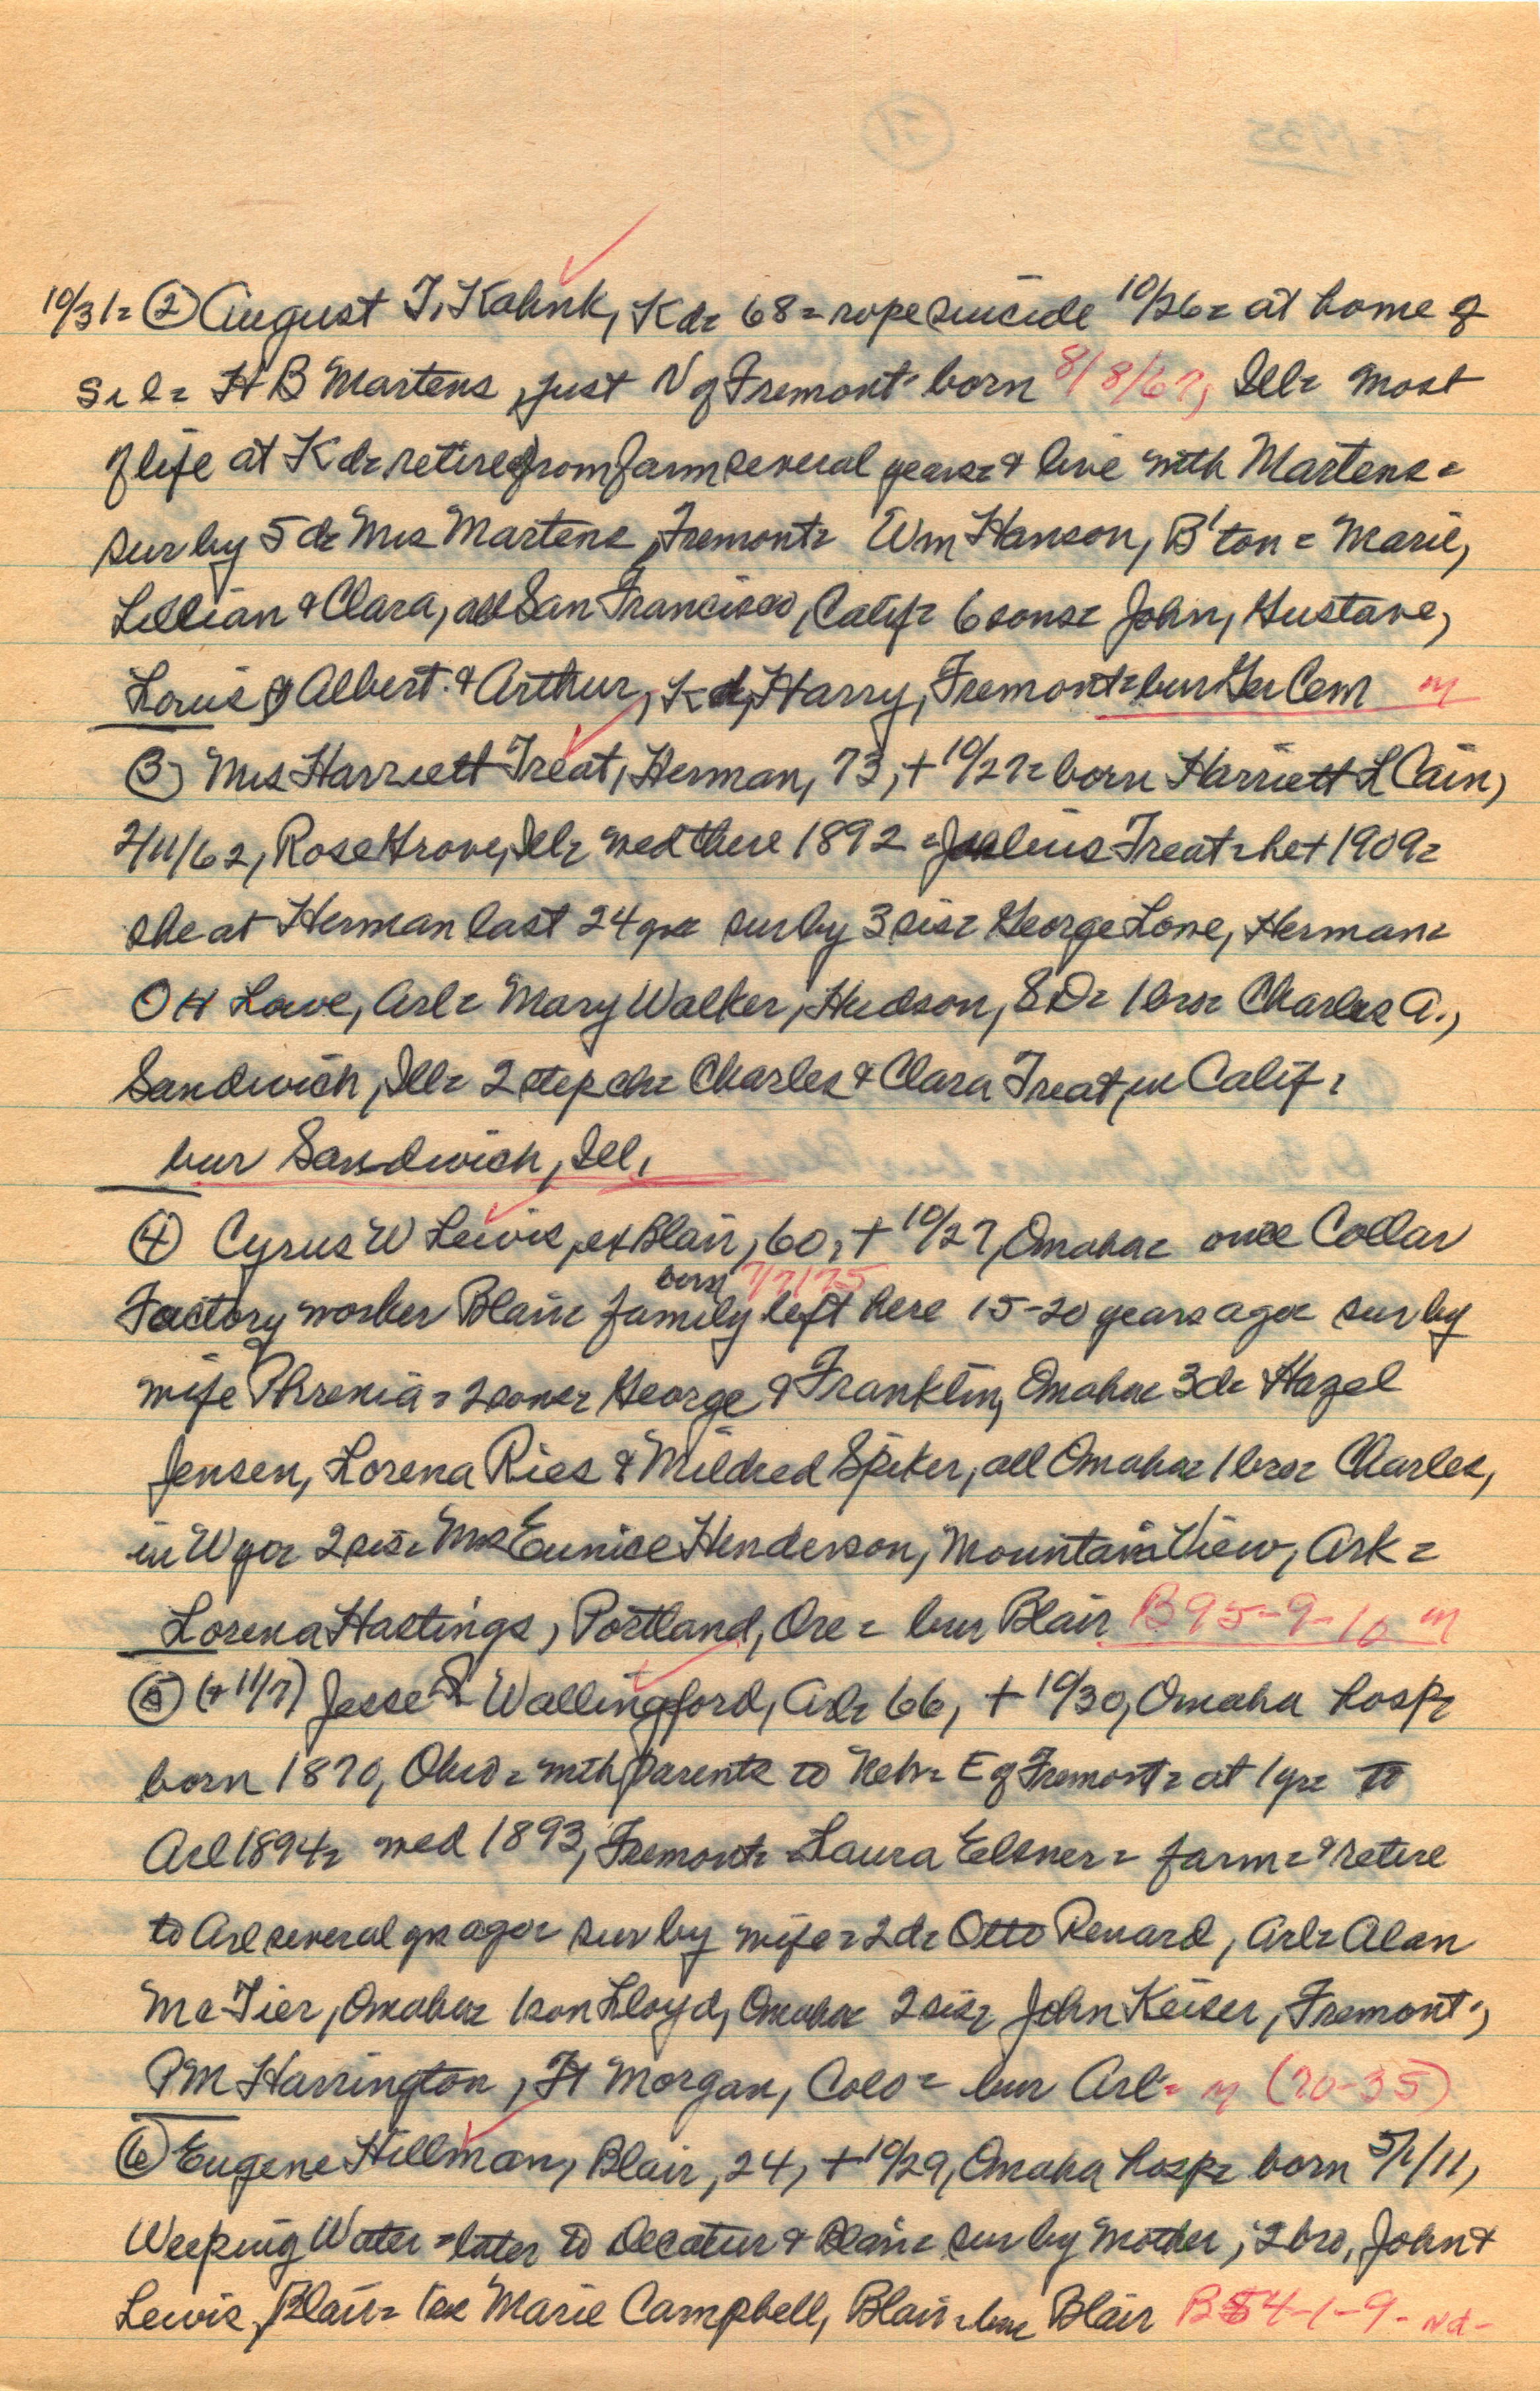 10/31= ② August T. Kahnk, Kd= 68= rope suicide 10/26= at home of
sil= H B Martens, just N of Fremont= born 8/8/67, Ill= most
of life at Kd= retired from farm several years= & live with Martens=
sur by 5 d= Mrs Martens, Fremont= Wm Hanson, B'ton= Marie,
Lillian & Clara, all San Francisco, Calif= 6 sons= John, Gustave,
Louis & Albert & Arthur, Kd, Harry, Fremont= bur Ger Cem m
③ Mrs Harriett Treat, Herman, 73, + 10/27= born Harriett L Cain,
2/11/62, Rose Grove, Ill= med there 1892= Julius Treat= he + 1909=
she at Herman last 24 yrs= sur by 3 sis= George Lowe, Herman=
O H Lowe, Arl= Mary Walker, Hudson, S D= 1 bro= Charles A.,
Sandwich, Ill= 2 step ch= Charles & Clara Treat, in Calif=
bur Sandwich, Ill,
④ Cyrus W Lewis, ex Blair, 60, + 10/27, Omaha= once Collar
born 7/7/75
Factory worker Blair= family left here 15-20 years ago= sur by
wife Phrenia= 2 sons= George & Franklin, Omaha= 3 d= Hazel
Jensen, Lorena Ries & Mildred Spiker, all Omaha= 1 bro= Charles,
in Wyo= 2 sis= Mrs Eunice Henderson, Mountain View, Ark=
Lorena Hastings, Portland, Ore= bur Blair B95-9-10 m
⑤ (+ 11/7) Jesse Wallingford, Arl= 66, + 10/30, Omaha hosp=
born 1870, Ohio= with parents to Neb= E of Fremont= at 1 yr= to
Arl 1894= med 1893, Fremont= Laura Elsner= farm= & retire
to Arl several yrs ago= sur by wife= 2 d= Otto Renard, Arl= Alan
McTier, Omaha= 1 son Lloyd, Omaha= 2 sis= John Keiser, Fremont=,
PM Harrington, Ft Morgan, Colo= bur Arl= m (70-35)
⑥ Eugene Hillman, Blair, 24, + 10/29, Omaha hosp= born 5/1/11,
Weeping Water= later to Decatur & Blair= sur by mother, 2 bro, John &
Lewis, Blair= 1 sis Marie Campbell, Blair= bur Blair B54-1-9- nd-